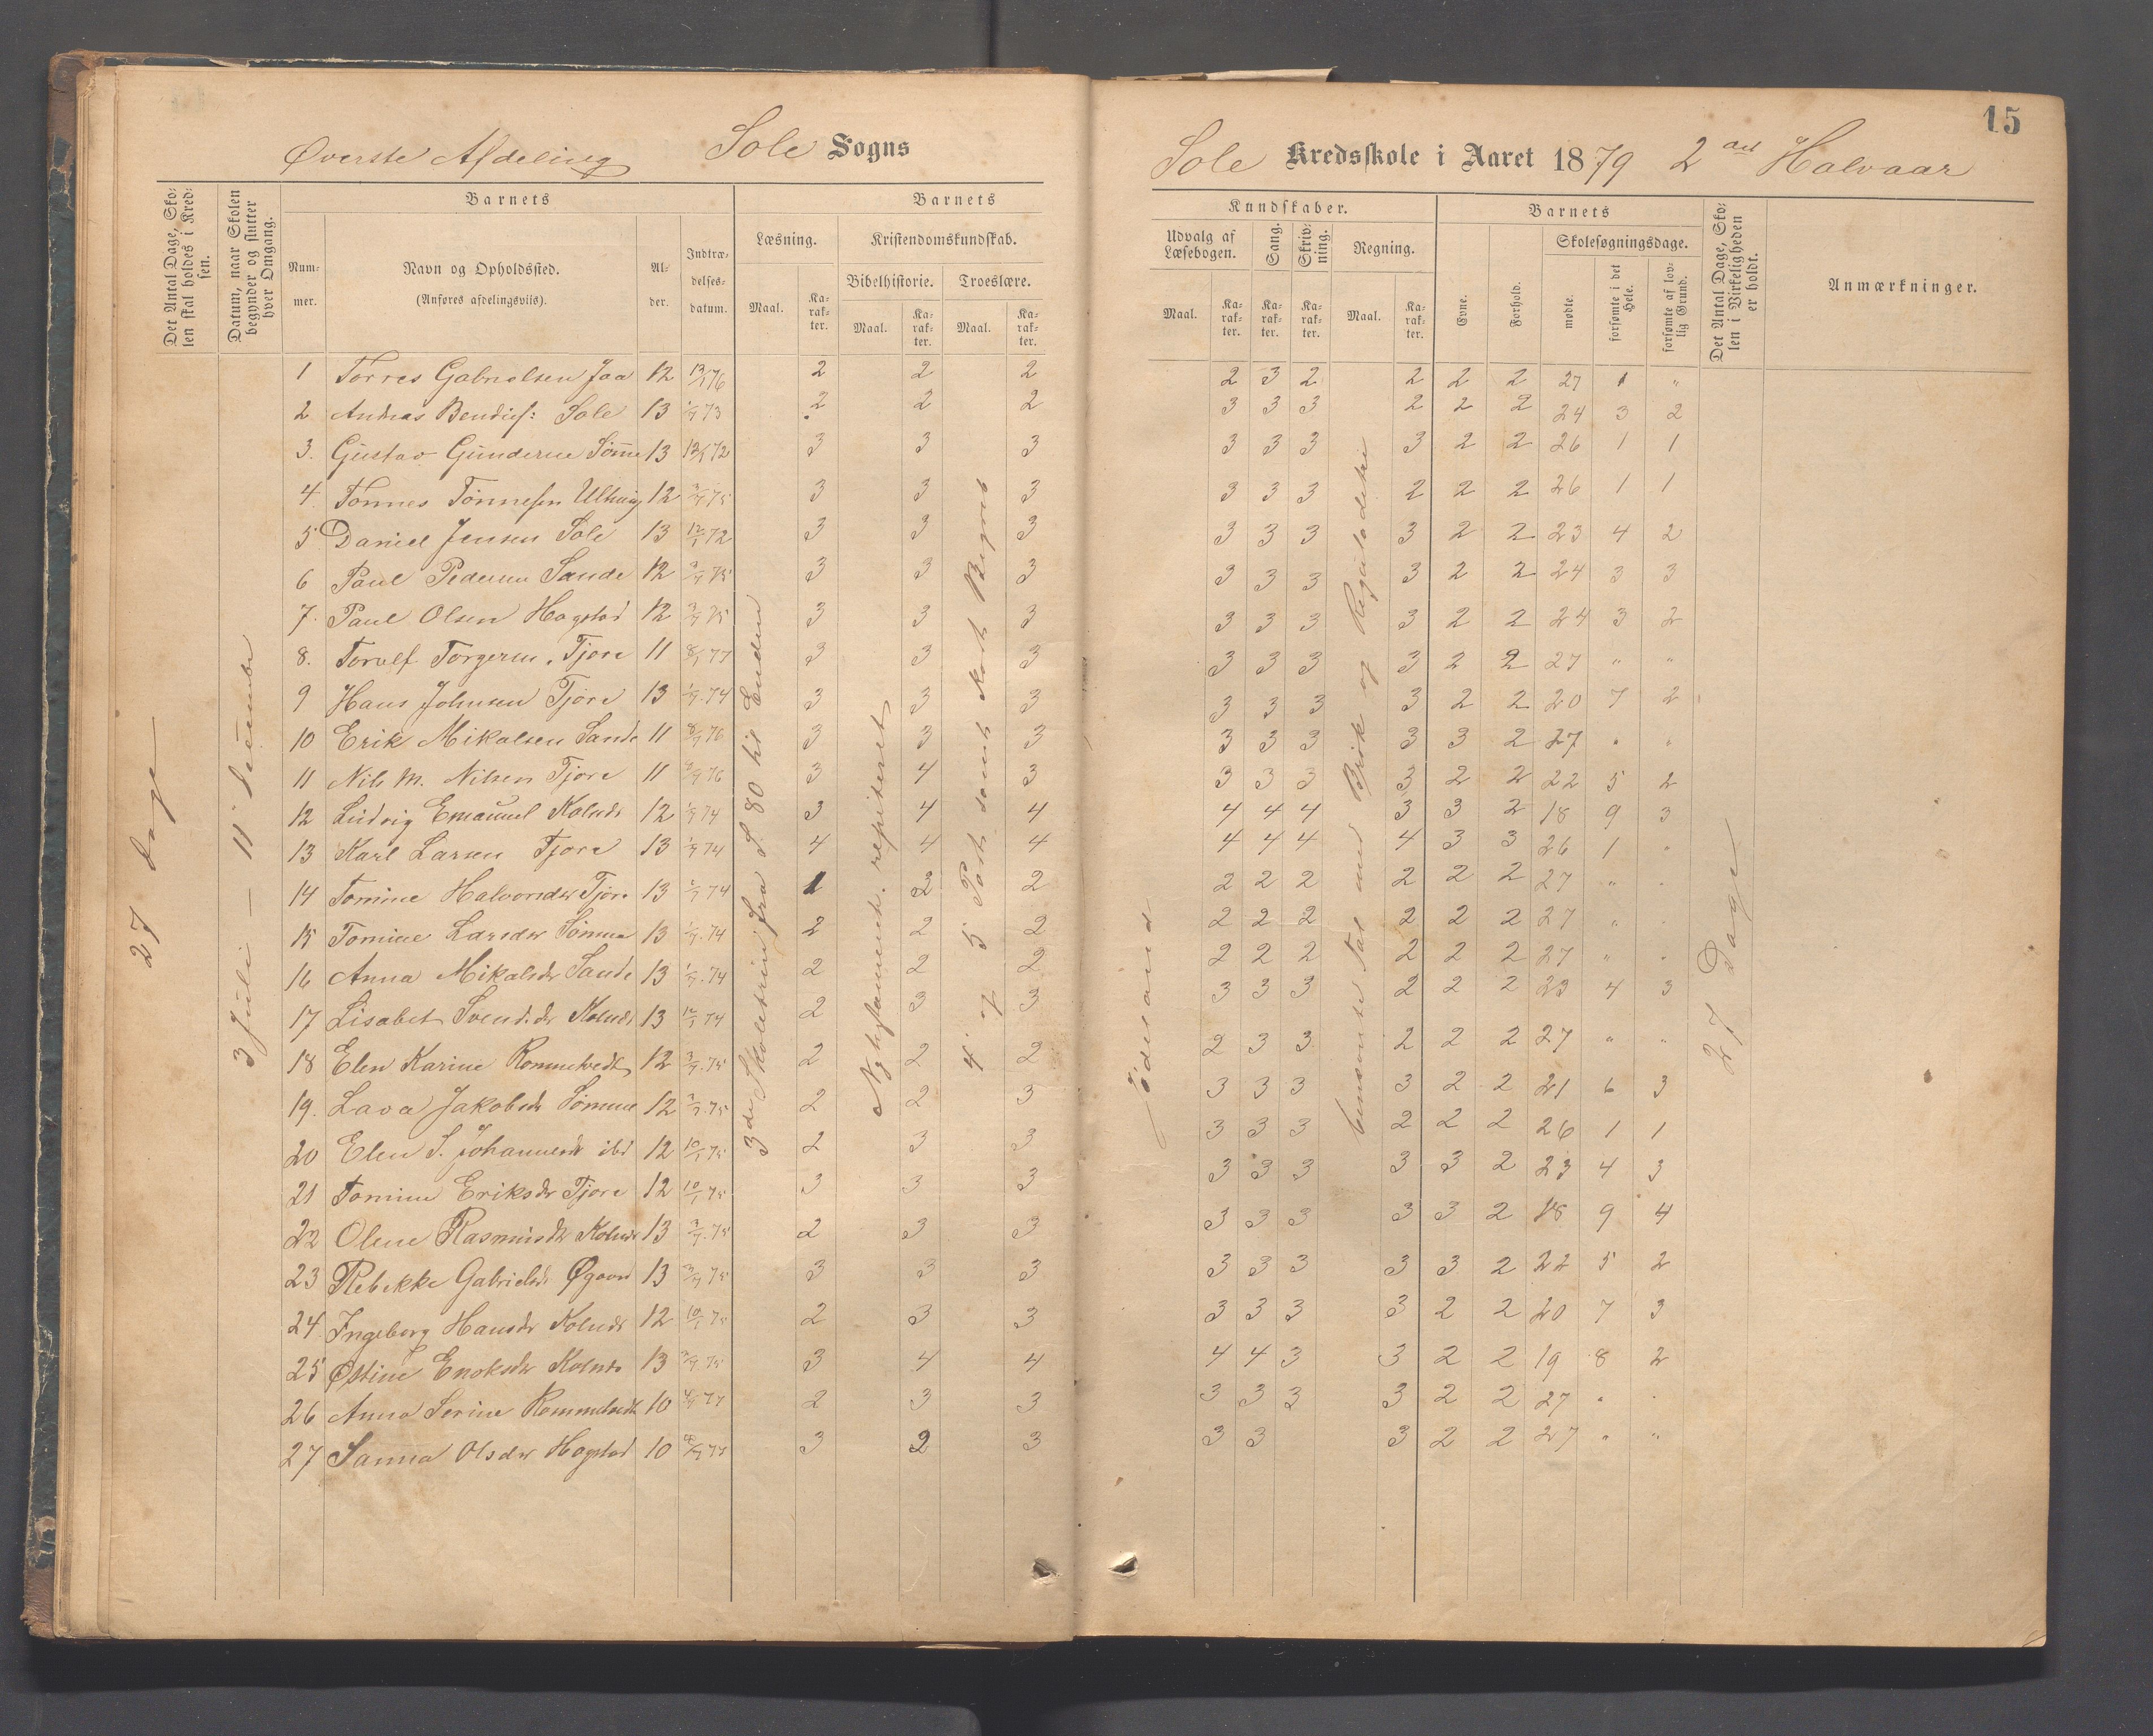 15
Øverste Afdeling Sole Sogns
Sole Kredsskole i Aaret 1879 2 Halvaar
Det Antal Dage, Skolen skal holdes i Kredsen.
Datum, naar Skolen begynder og slutter hver Omgang.
Barnets
Nummer.
Navn og Opholdssted.
(Anføres afdelingsviis).
Alder.
Indtrædelsesdatum.
Barnets
Læsning.
Kristendomskundskab.
Bibelhistorie. Troeslære.
Maal. Karakter. Maal. Karakter. Maal. Karakter.
Kundskaber.
Udvalg af Læsebogen. Sang. Skrivning. Regning.
Maal. Karakter. Karakter. Karakter. Maal. Karakter.
Barnets
Evne. Forhold.
Skolesøgningsdage.
mødte. forsømte i det Hele. forsømte af lovlig Grund.
Det Antal Dage, Skolen i Virkeligheden er holdt.
Anmærkninger.
27 dage
3 Juli – 11 December
3de Skoletrin fra S. 80 til Enden
repiteret
4 og 5 Part samt
og
27 Dage
1 Torres Gabrielsen Jaa 12 13/1 76 2 2 2 2 3 2 2 2 2 27 "
2 Andreas Bendics: Sole 13 73 2 2 2 3 3 3 2 2 2 24 3 2
3. Gustav Gundersen Sømme 13 12/1 72 3 3 3 3 3 3 3 2 2 26 1 1
4. Tønnes Tønnesen 12 3/7 75 3 3 3 3 3 3 2 2 2 26 1 1
5 Daniel Jensen Sole 13 12/1 72 3 3 3 3 3 3 3 2 2 23 4 2
6 Paul Pedersen Sande 12 3/7 75 3 3 3 3 3 3 3 2 2 24 3 3
7. Paul Olsen Hogstad 12 3/7 75 3 3 3 3 3 3 3 2 2 24 3 2
8. Torulf Torgersen. Tjora 11 8/1 77 3 3 3 3 3 3 3 2 2 27 " "
9 Hans Johnsen Tjora 13 1/7. 74 3 3 3 3 3 3 3 2 2 20 7 2
10 Erik Mikalsen Sande 11 76 3 3 3 3 3 3 3 3 2 27 " "
11 Nils M. Nilsen Tjora 11 76 3 4 3 3 3 3 3 2 2 22 5 2
12 Ludvig Emanuel 12 1/7 74 3 4 4 4 4 4 3 3 2 18 9 3
13 Karl Larsen Tjora 13 1/7 74 4 4 4 4 4 4 4 3 3 26 1 "
14 Tomine Halvorsdtr Tjora 13 1/7 74 1 2 2 2 2 2 2 2 27 " "
15 Tomine Larsdtr Sømme 13 1/7. 74 2 2 2 2 2 2 2 2 2 27 " "
16 Anna Mikalsdtr Sande 13 1/7. 74 2 2 2 2 2 2 2 2 2 27 " "
17 Lisabet Svendsdtr 13 12/1 74 2 3 3 3 3 3 2 2 2 23 4 3
18 Elen Karine Rommetvedt 12 3/7. 75 2 2 2 2 3 3 2 2 2 27 " "
19. Lava Jakobsdtr Sømme 12 3/7. 75 2 2 3 3 3 3 3 2 2 21 6 3
20 Elen S. Johannesdtr ibd 12 10/1 75 2 3 3 3 3 3 2 2 2 26 1 1
21 Tomine Eriksdtr Tjora 12 10/1 75 3 3 3 3 3 3 3 3 2 23 4 3
22 Olene Rasmusdtr 13 3/7. 75 2 3 3 3 3 3 3 3 2 18 9 4
23 Rebekke Gabrielsdtr 13 3/7 75 3 3 3 3 3 3 3 3 2 22 5 2
24. Ingeborg Hansdtr 12 10/1 75 2 3 3 3 3 3 3 2 2 20 7 3
25 Østine Enoksdtr 13 3/7 75 3 4 4 4 4 3 3 2 2 19 8 2
26 Anna Serine Rommetvedt 10 77 2 3 3 3 3 3 3 2 2 27 " "
27 Sanna Olsdtr Hogstad 10 77 3 2 3 3 3 3 2 2 27 " "